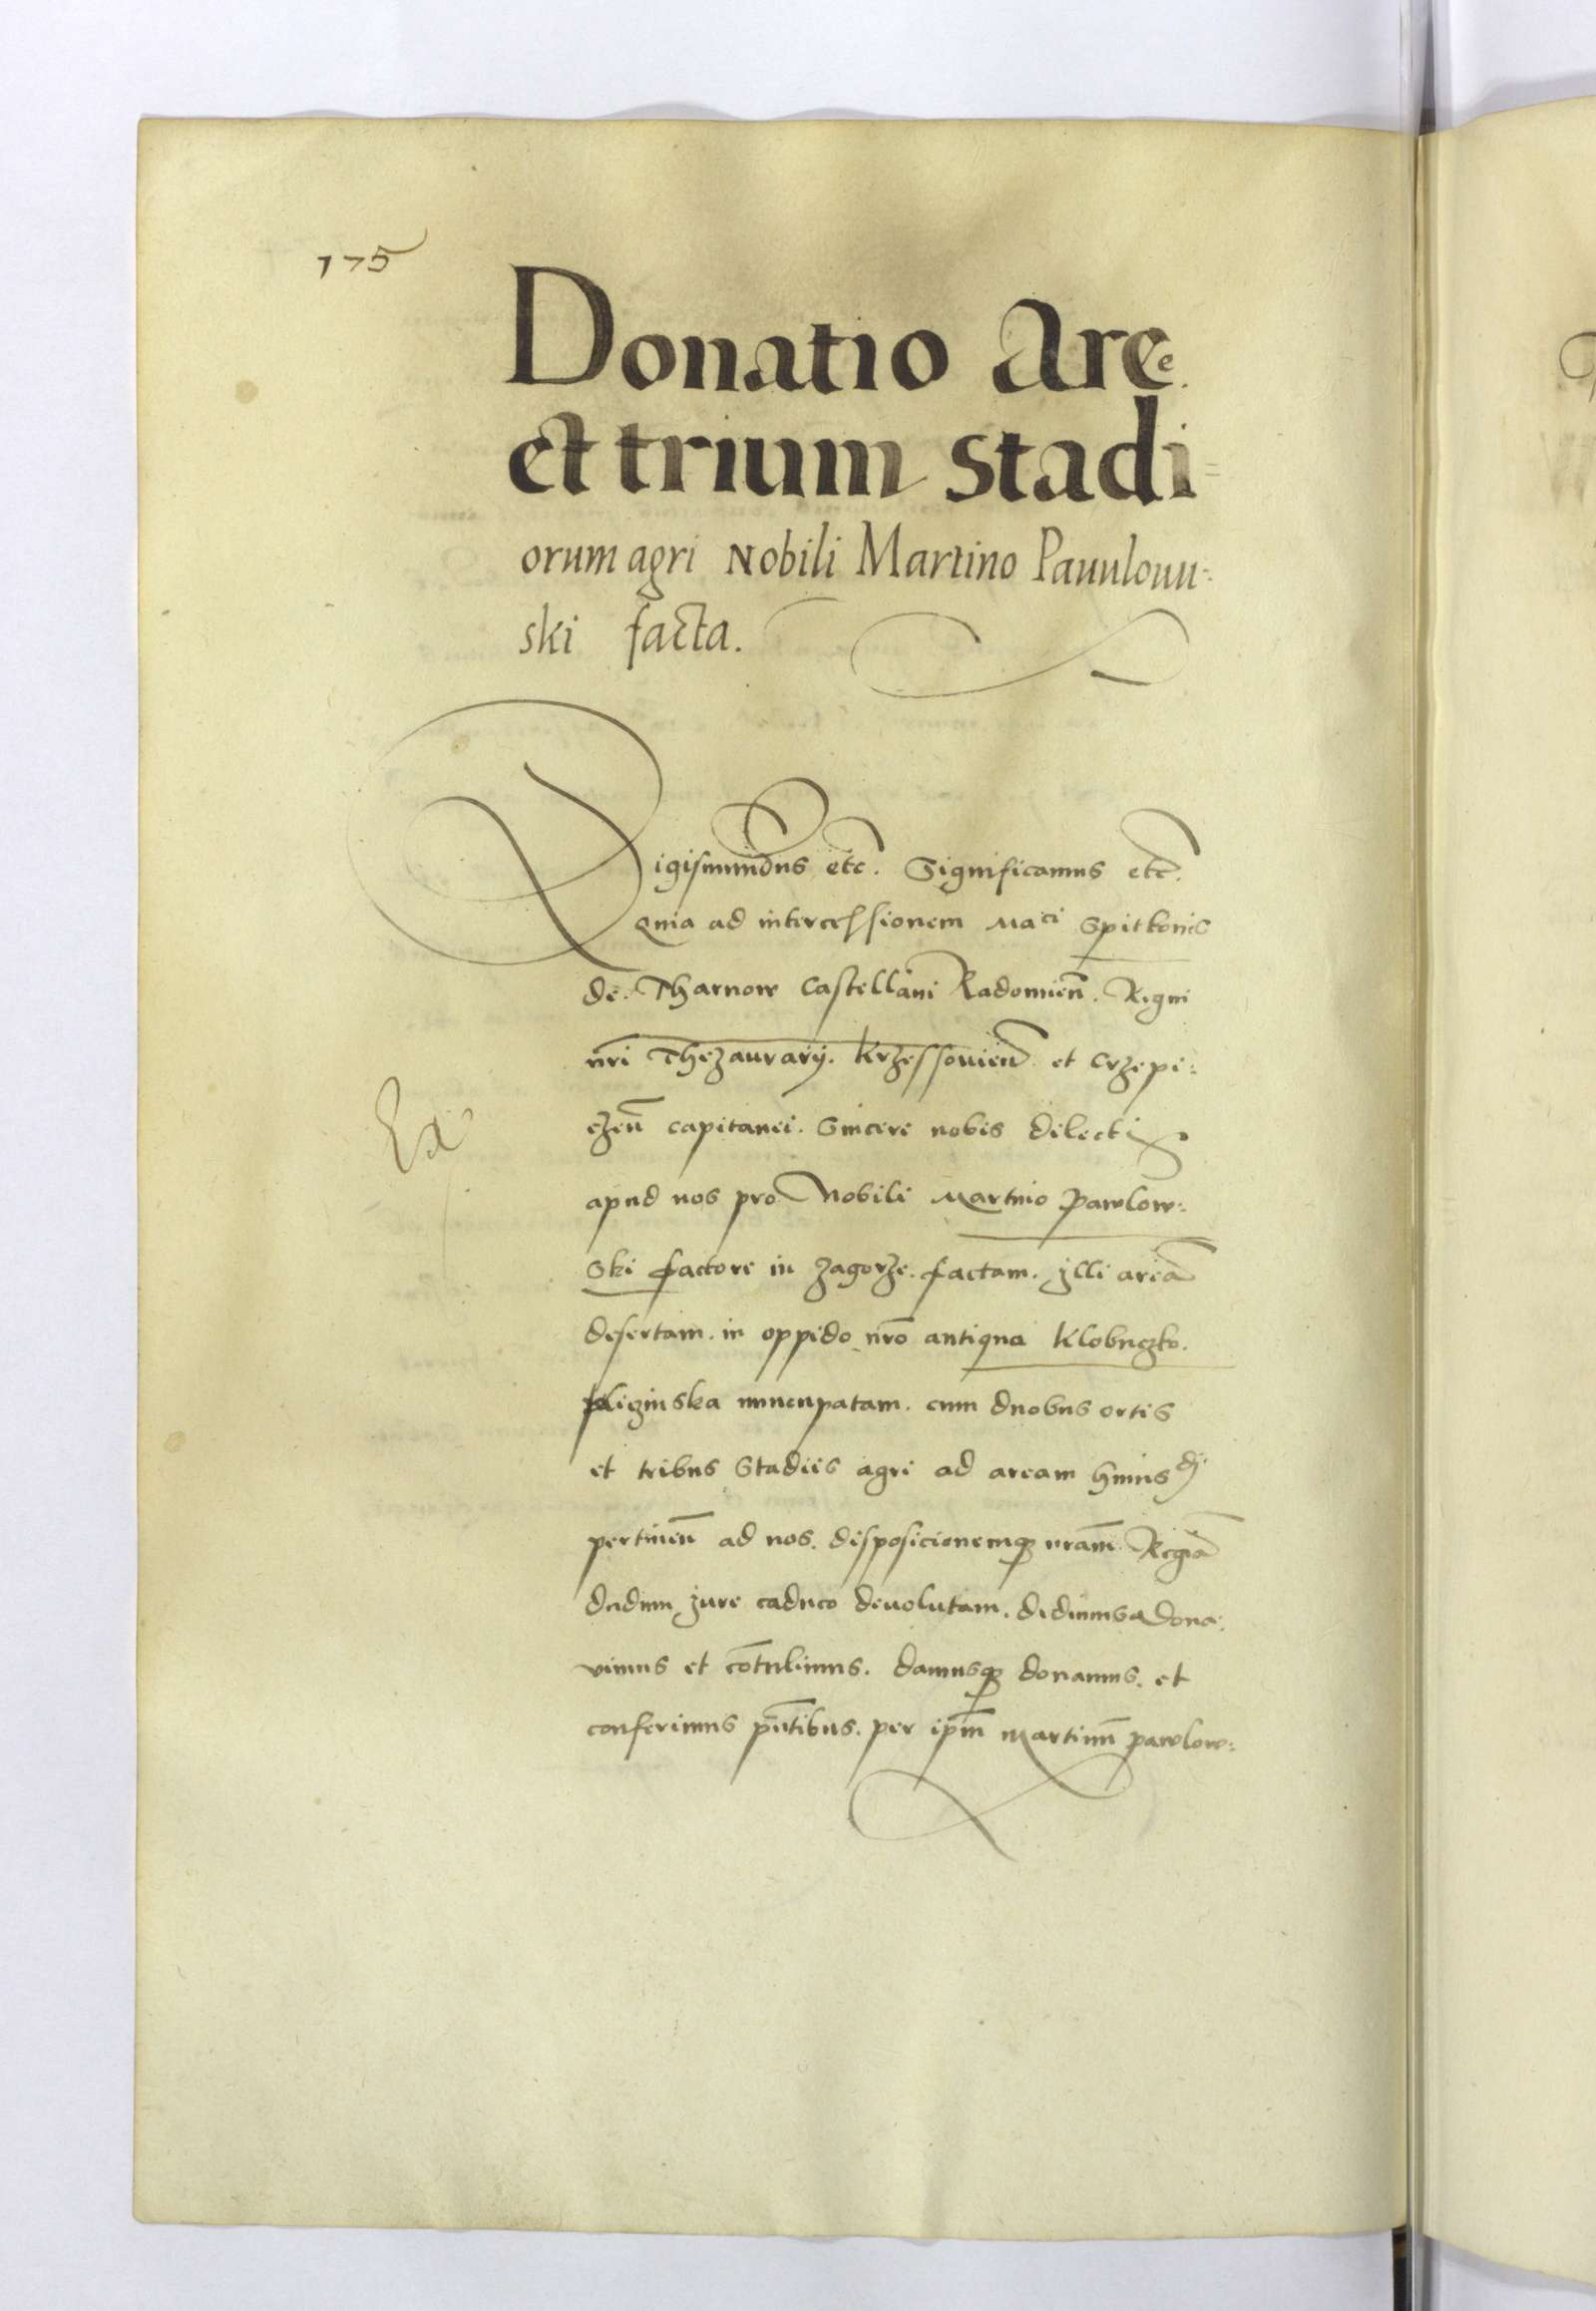 175
Donatio Aree
et trium stadi=
orum agri Nobili Martino Pauulouu:
ski facta.
Sigismundus etc. Significamus etc.
Quia ad intercessionem Maci Spitkonis
de Tharnow Castellani Radomien. Regni
nri Thezaurarij. Krzessouien et Crzepi:
czen capitanei. Sincere nobis dilecti
apud nos pro Nobili Martino Pawlow:
Ski factore in Zagorze. factam. jlli aream
desertam. in oppido nro antiqua Klobuczko.
nuncupatam. cum duobus ortis
et tribus Stadiis agri ad aream huiusdj
pertinen ad nos. disposicionemq nram Regia
dudum jure caduco deuolutam. dedimus dona:
vimus et cotulimus. damusq donamus. et
conferimus pntibus. per ipm Martinu pawlow:
Ex